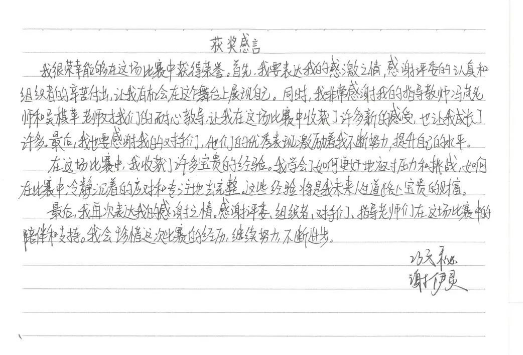 获奖感言
我很荣幸能够在这场比赛中获得荣誉。首先,我要表达我的感激之情,感谢评委的认真和
组织者的辛苦付出,让我有机会在这个舞台上展现自己。同时,我非常感谢我的指导教师冯虎老
师和吴植革老师对我们的耐心教导,让我在这场比赛中收获了许多新的感受,也让我成长了
许多。最后,我也要感谢我的对手们,他们的优秀表现激励着我不断努力,提升自己的水平。
在这场比赛中,我收获了许多宝贵的经验。我学会了如何更好地应对压力和挑战,如何
在比赛中冷静沉着的应对和专注地去完整,这些经验将是我未来人生道路上宝贵的财富。
最后,我再次表达我的感谢之情。感谢评委、组织者、对手们、指导老师们在这场比赛中的
陪伴和支持。我会珍惜这次比赛的经历,继续努力,不断进步。
谢伊灵